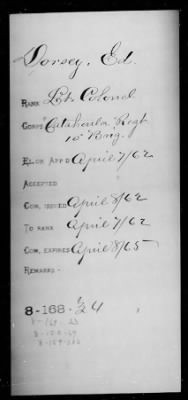 Dorsey, Ed.
RANK Lt. Colonel
CORPS Catahoula Regt
10 Brig.
EL. OR APP'D April 7/62
ACCEPTED
COM. ISSUED April 8/62
TO RANK April 7/62
COM. EXPIRES April 8/65
REMARKS.
8-168. 24